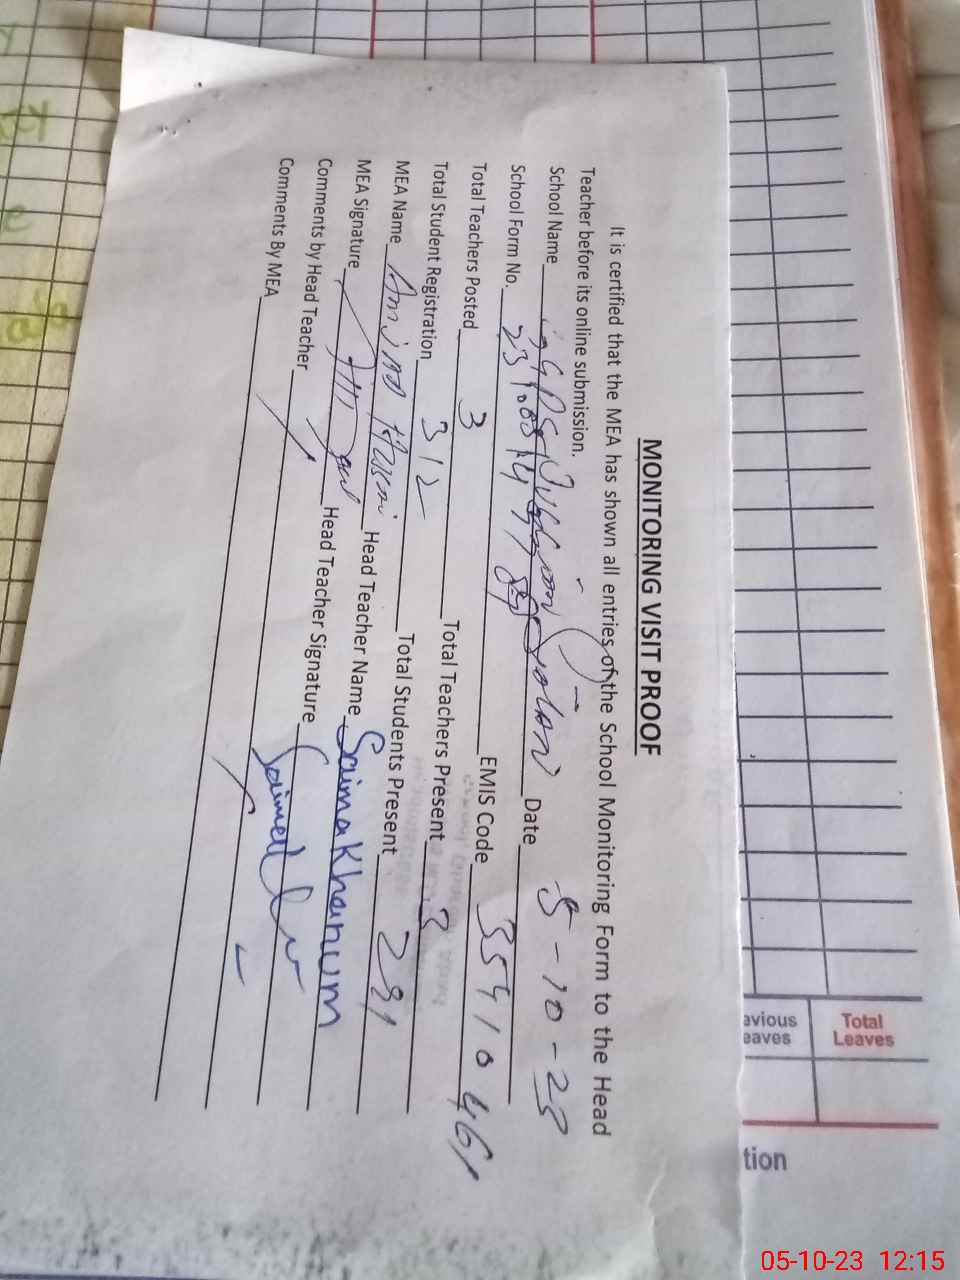 MONITORING VISIT PROOF
It is certified that the MEA has shown all entries of the School Monitoring Form to the Head
Teacher before its online submission.
School Name Date 5-10-23
School Form No. EMIS Code 35410461
Total Teachers Posted 3 Total Teachers Present 3
Total Student Registration 312 Total Students Present 291
MEA Name Amjad Hussain Head Teacher Name Saima Khanum
MEA Signature Head Teacher Signature
Comments by Head Teacher
Comments By MEA
avious
eaves
Total
Leaves
tion
05-10-23 12:15